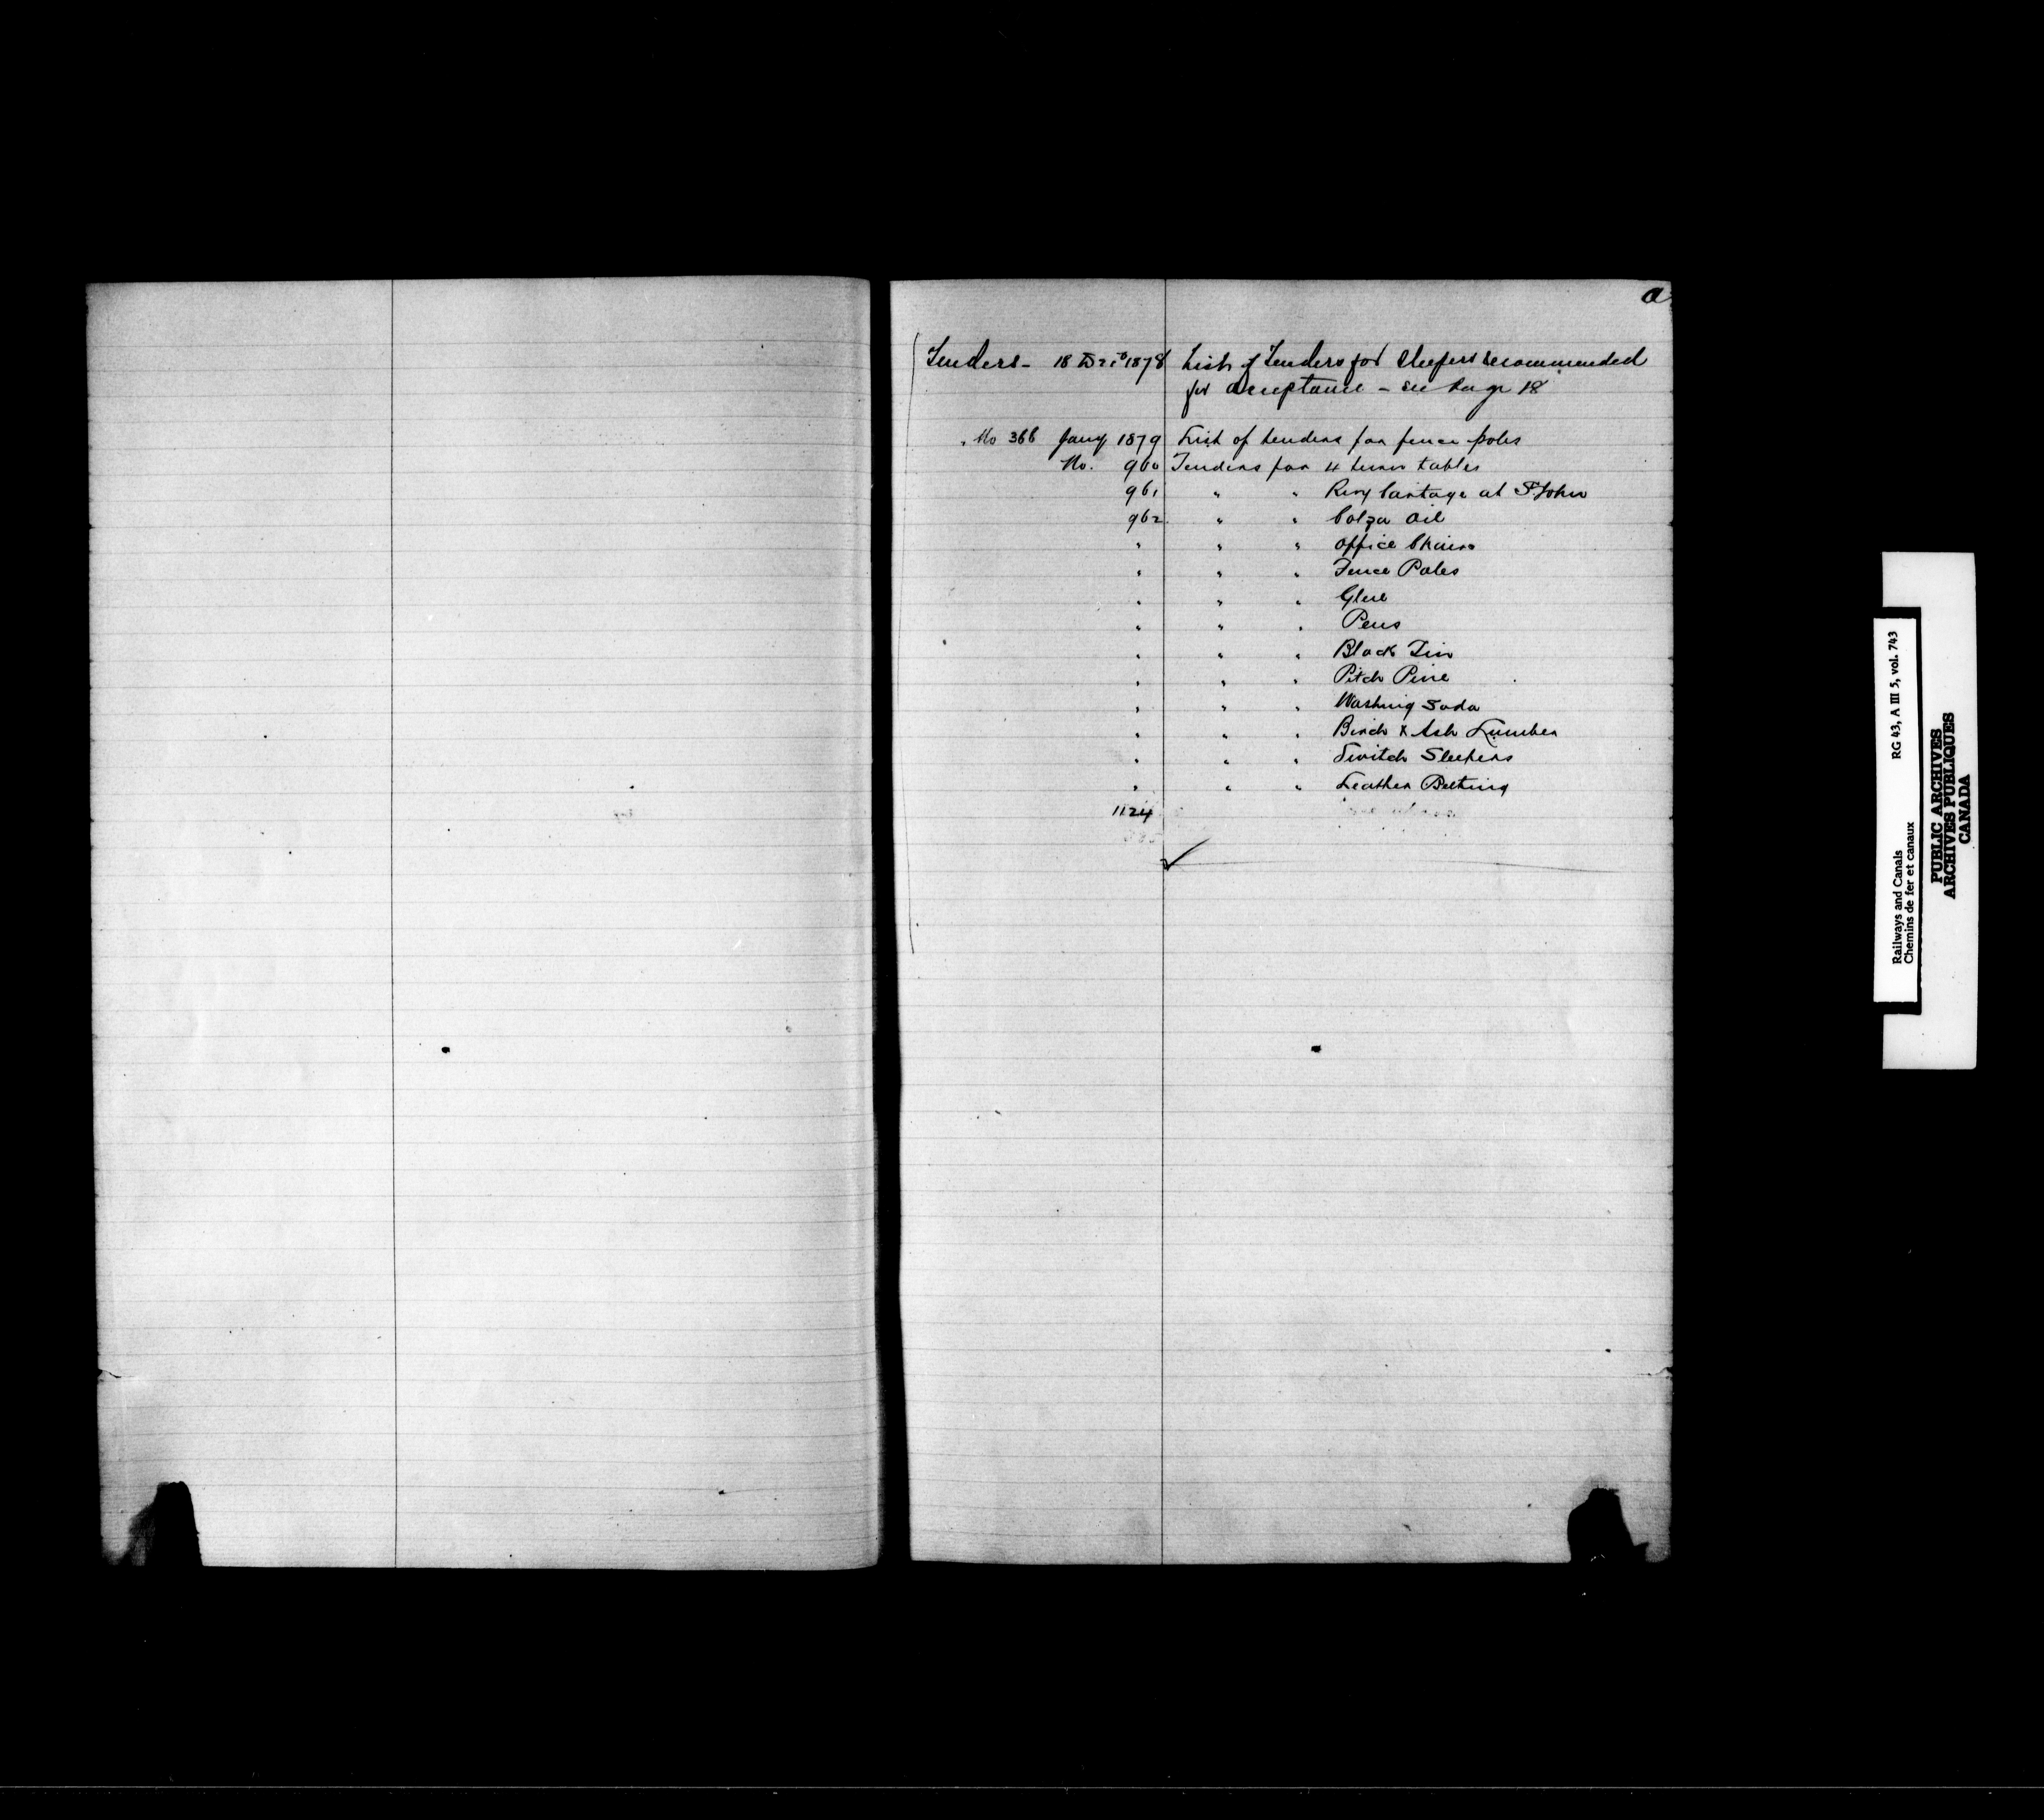 a
Tenders - 18 Decr 1878 List of Tenders for Sleepers recommended
for acceptance - see Page 18
" No 366 Jany 1879 List of tenders for fence poles
No. 960 Tenders for 4 turn tables
961 " " Rwy Cartage at St John
962 " " Colza Oil
" " " Office Chairs
" " " Fence Poles
" " " Glue
" " " Pens
" " " Block Tin
" " " Pitch Pine
" " " Washing Soda
" " " Birch & Ash Lumber
" " " Switch Sleepers
" " " Leather Belting
1124
Railways and Canals RG 43, A III 5, vol. 743
Chemins de fer et canaux
PUBLIC ARCHIVES
ARCHIVES PUBLIQUES
CANADA